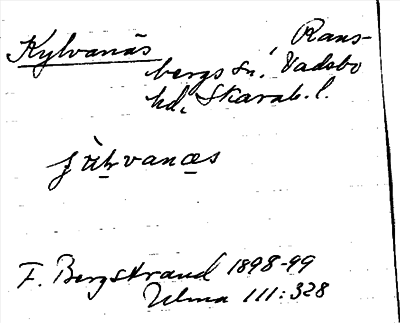 Kylvanäs
Rans-
bergs sn, Vadsbo
hd, Skarab. l.
F. Bergstrand 1898-99
Ulma 111:328